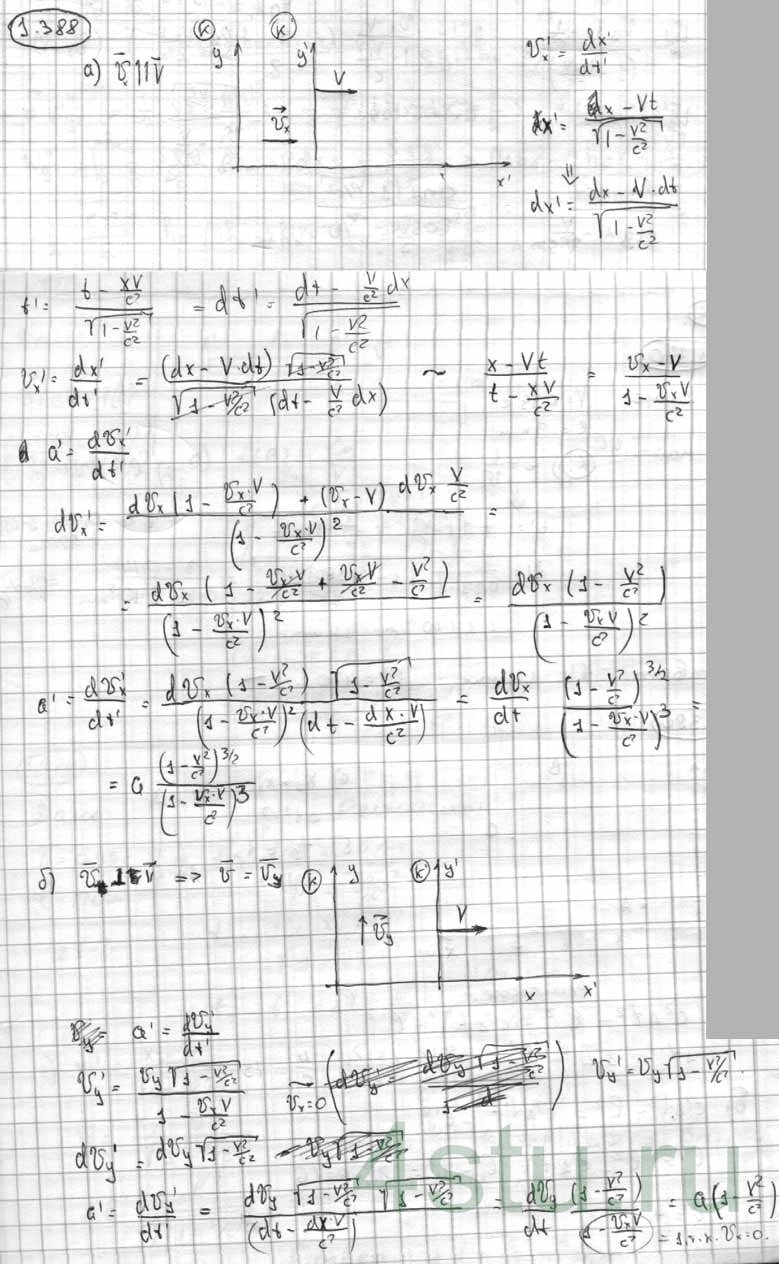 1.388
K K'
а) v̄ ∥ V̄
y y' V
v⃗ₓ
x'
vₓ' = dx'/dt'
dx' = (dx - Vt)/√(1 - V²/c²)
⇓
dx' = (dx - V·dt)/√(1 - V²/c²)
t' = (t - xV/c²)/√(1 - V²/c²) = dt' = (dt - V/c² dx)/√(1 - V²/c²)
vₓ' = dx'/dt' = (dx - V·dt) √(1 - V²/c²) / √(1 - V²/c²) (dt - V/c² dx) ~ (x - Vt)/(t - xV/c²) = (vₓ - V)/(1 - vₓV/c²)
a' = dvₓ'/dt'
dvₓ' = (dvₓ (1 - vₓ·V/c²) + (vₓ - V) dvₓ V/c²)/(1 - vₓ·V/c²)² =
= dvₓ (1 - vₓ·V/c² + vₓV/c² - V²/c²)/(1 - vₓ·V/c²)² = dvₓ (1 - V²/c²)/(1 - vₓV/c²)²
a' = dvₓ'/dt' = dvₓ (1 - V²/c²) √(1 - V²/c²) / (1 - vₓ·V/c²)² (dt - dx·V/c²) = dvₓ/dt (1 - V²/c²)^3/2 / (1 - vₓ·V/c²)³ =
= a (1 - V²/c²)^3/2 / (1 - vₓ·V/c²)³
б) v̄ ⊥ V̄ => v̄ = v̄y
K y K' y'
v̄y V
x x'
a' = dvy'/dt'
vy' = vy √(1 - V²/c²) / (1 - vₓV/c²) ~ vₓ=0 vy' = vy √(1 - V²/c²)
dvy' = dvy √(1 - V²/c²)
a' = dvy'/dt' = dvy √(1 - V²/c²) √(1 - V²/c²) / (dt - dx·V/c²) = dvy/dt (1 - V²/c²)/(1 - vₓV/c²) = a(1 - V²/c²)
= 1, т.к. vₓ=0.
4stu.ru